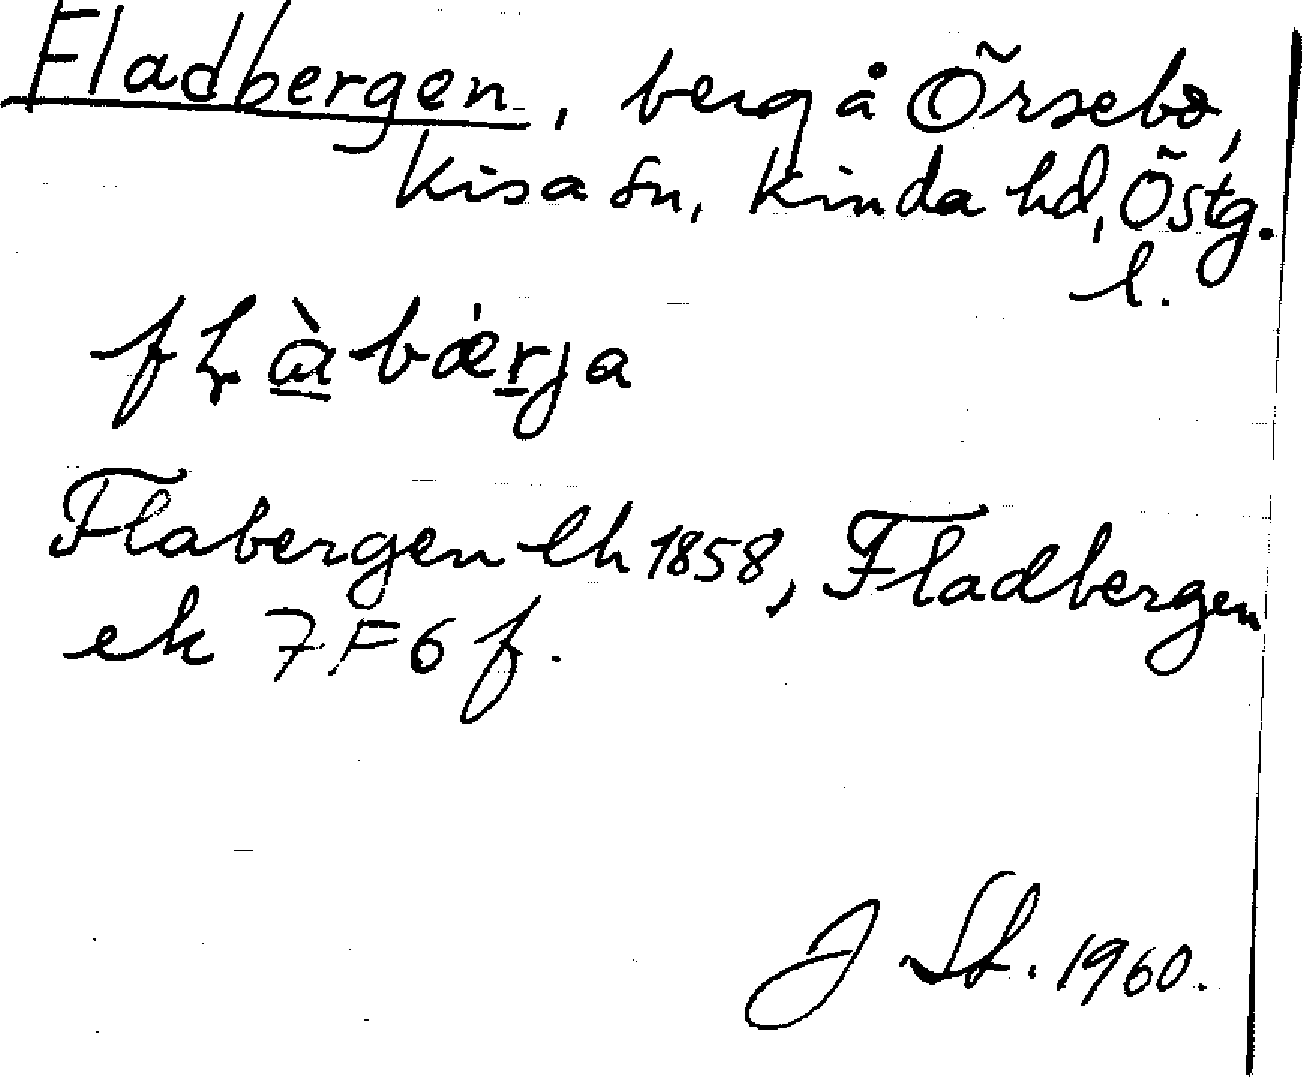 Fladbergen, berg å Örsebo,
Kisa sn, Kinda hd, Östg.
l.
Flabergen lh 1858, Fladbergen
ek 7F6f.
J St. 1960.